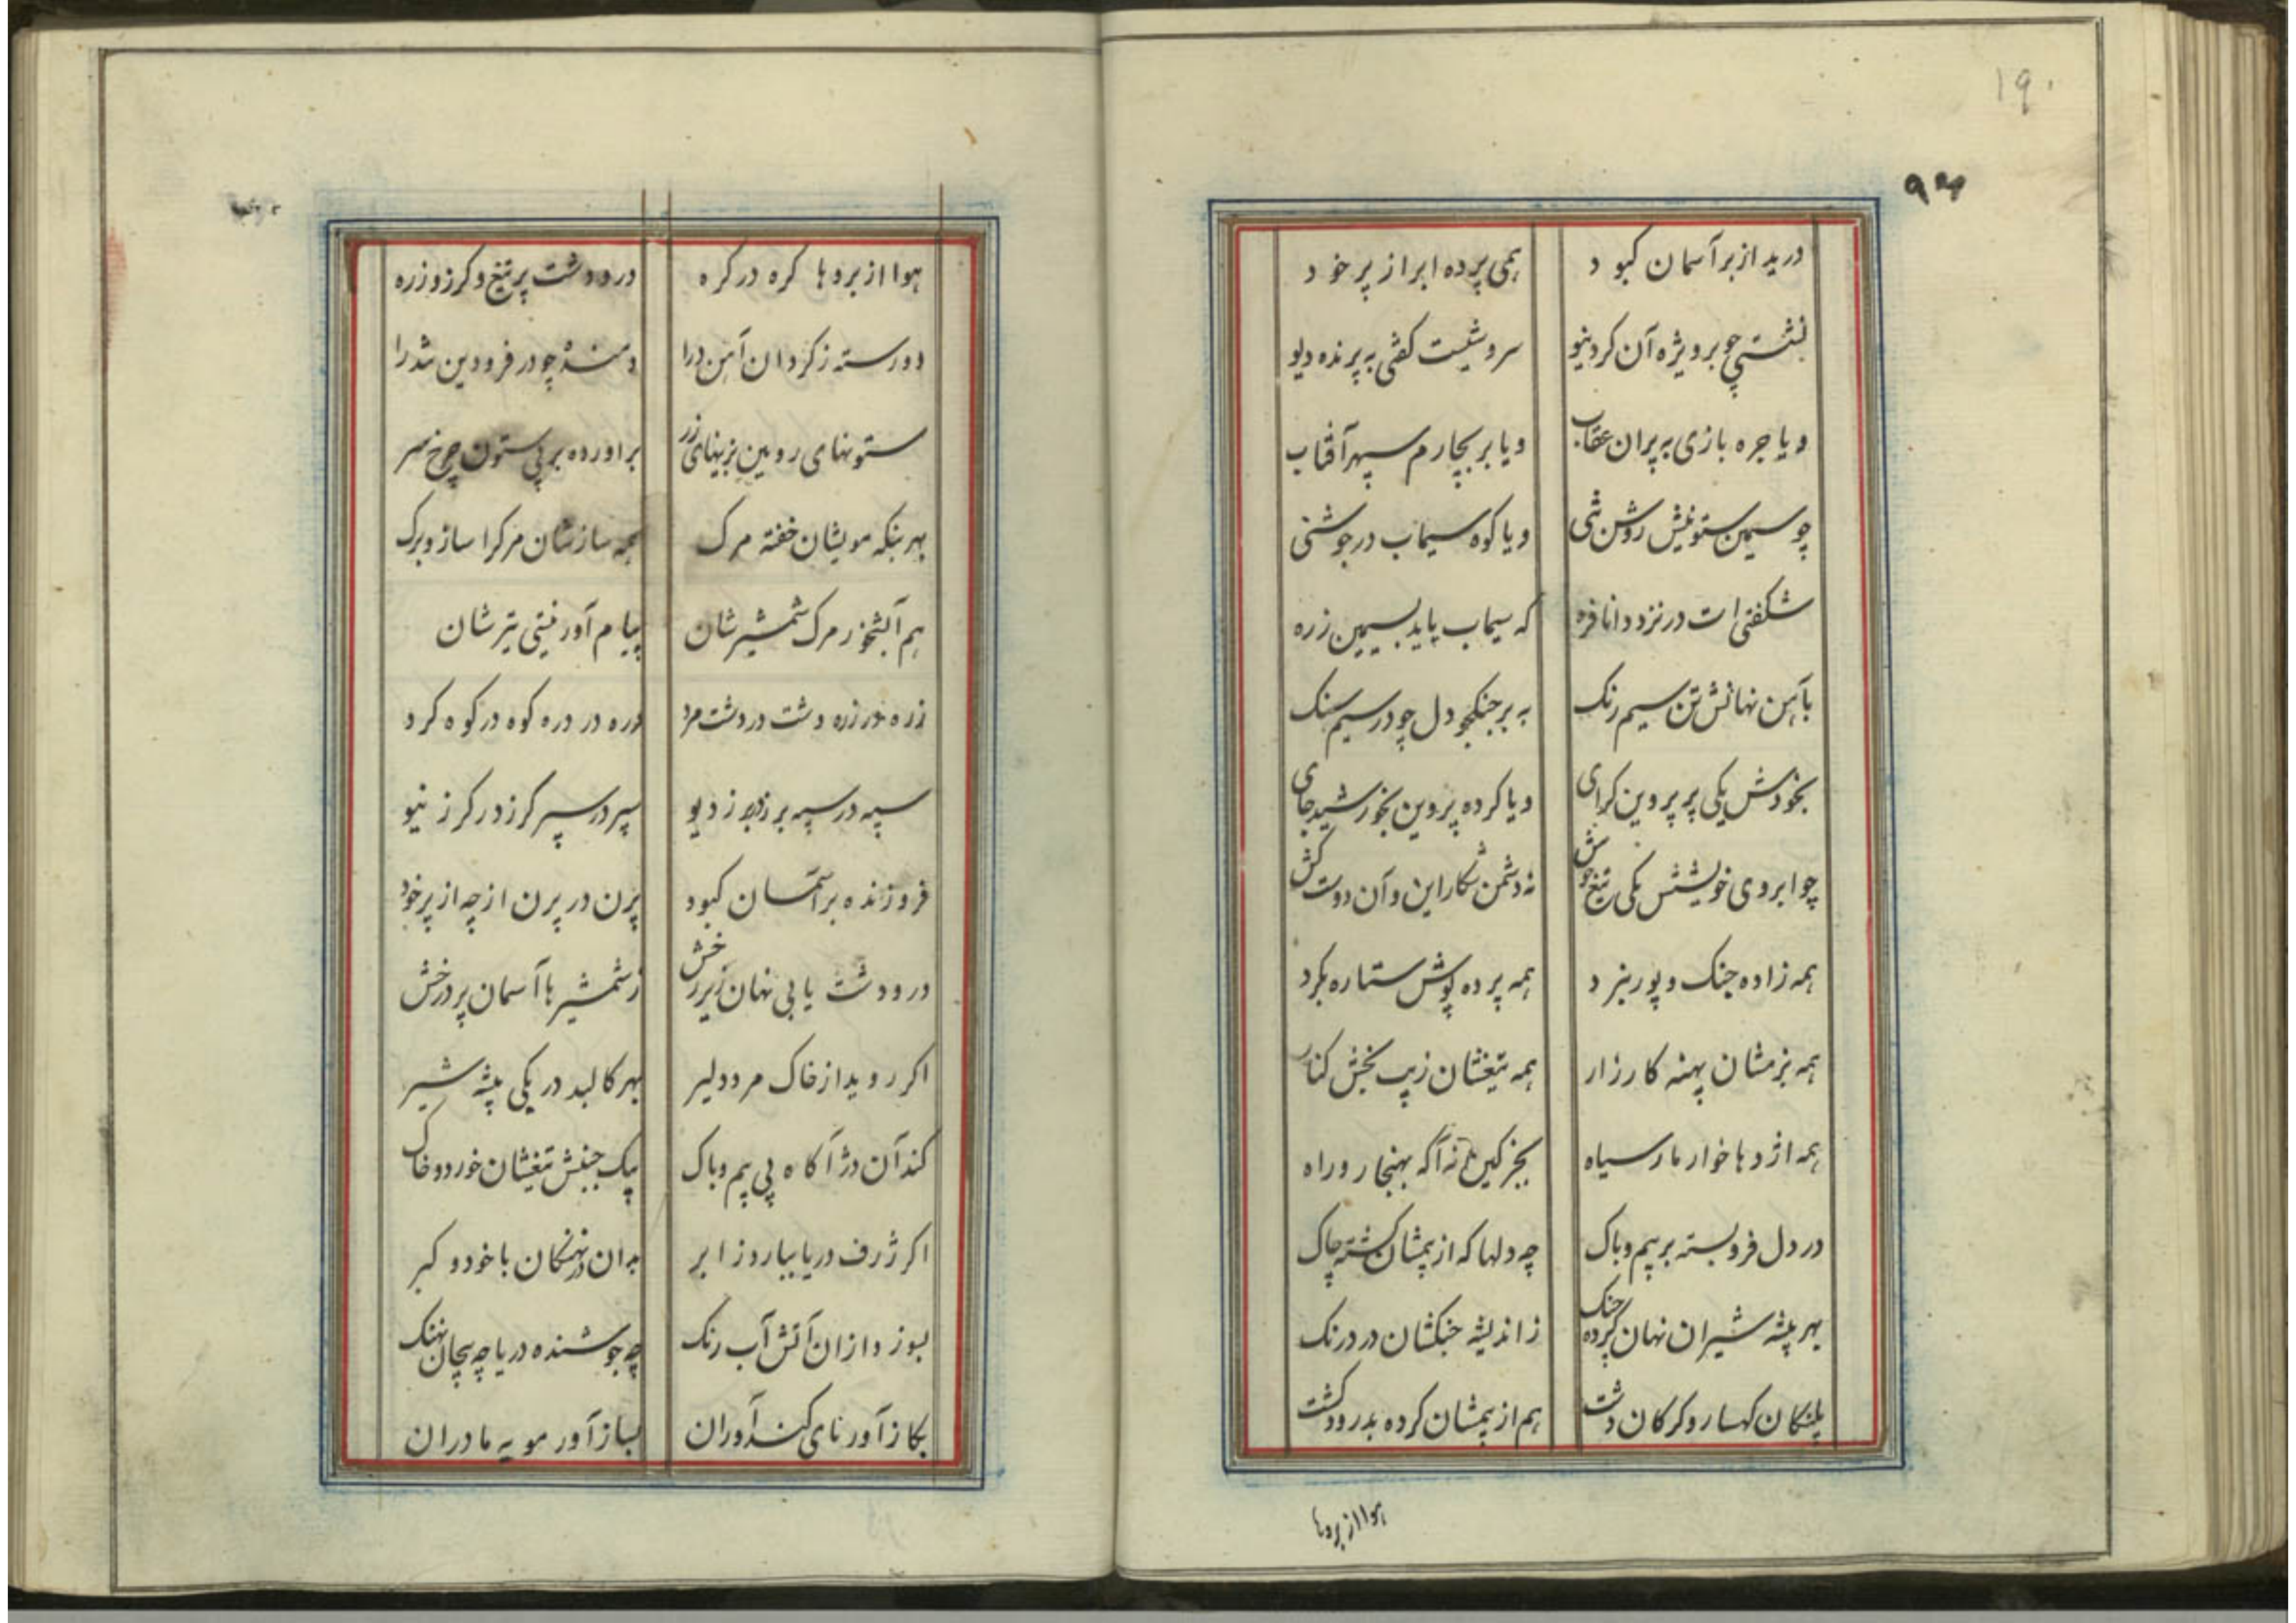 ۱۹۰
درید از بر آسمان کبود
همی پرده ابر از پر خود
نشستی چو بر ویژه آن کرد نیو
سروشیست کفتی به پرنده دیو
و یا جره بازی به پران عقاب
و یا بر بچارم سپهر آفتاب
چو سیمین ستونیش روشن تنی
و یا کوه سیماب در جوشنی
شکفتی است در نزد دانا فره
که سیماب پاید بسیمین زره
بآهن نهانش تن سیم رنک
به بر جنکجو دل چو در سیم سنک
بخودش یکی پر پروین کرای
و یا کرده پروین بخورشید جای
چو ابروی خویشش یکی تیغ خوش
نه دشمن شکار این و آن دوست کش
همه زاده جنک و پور نبرد
همه پرده پوش ستاره بکرد
همه بزمشان پهنه کارزار
همه تیغشان زیب بخش کنار
همه اژدها خوار مار سیاه
بجز کین نه آکه بهنجار و راه
در دل فرو بسته بر بیم و باک
چه دلها که از بیمشان کشته چاک
بهر بیشه شیران نهان کرده جنک
ز اندیشه جنکشان در درنک
پلنکان کهسار و کرکان دشت
هم از بیمشان کرده بدرود کشت
هوا از بروها
هوا از بروها کره در کره
در و دشت پر تیغ و کرز و زره
دو رسته ز کردان آهن درا
دمنده چو در فرودین تندرا
ستونهای روبین بزینهای زر
براورده بر بی ستون چرخ سر
بهر بنکه مویشان خفته مرک
همه سازشان مرکرا ساز و برک
هم آبشخور مرک شمشیرشان
پیام آور نیتی تیرشان
زره در زره دشت در دشت مرد
دره در دره کوه در کوه کرد
سپه در سپه برز در برز دیو
سپر در سپر کرز در کرز نیو
فروزنده بر آسمان کبود
پرن در پرن از چه از پر خود
در و دشت یا بی نهان زیر رخش
ز شمشیرها آسمان پر درخش
اکر روید از خاک مرد دلیر
بهر کالبد در یکی بیشه شیر
کند آن دژ آکاه بی بیم و باک
بیک جنبش تیغشان خورد و خاک
اکر ژرف دریا ببارد ز ابر
بدان در نهنکان با خود و کبر
بسوزد از ان آتش آب رنک
چه جوشنده دریا چه بیجان نهنک
بکاز آور نای کند آوران
بساز آور مویه مادران